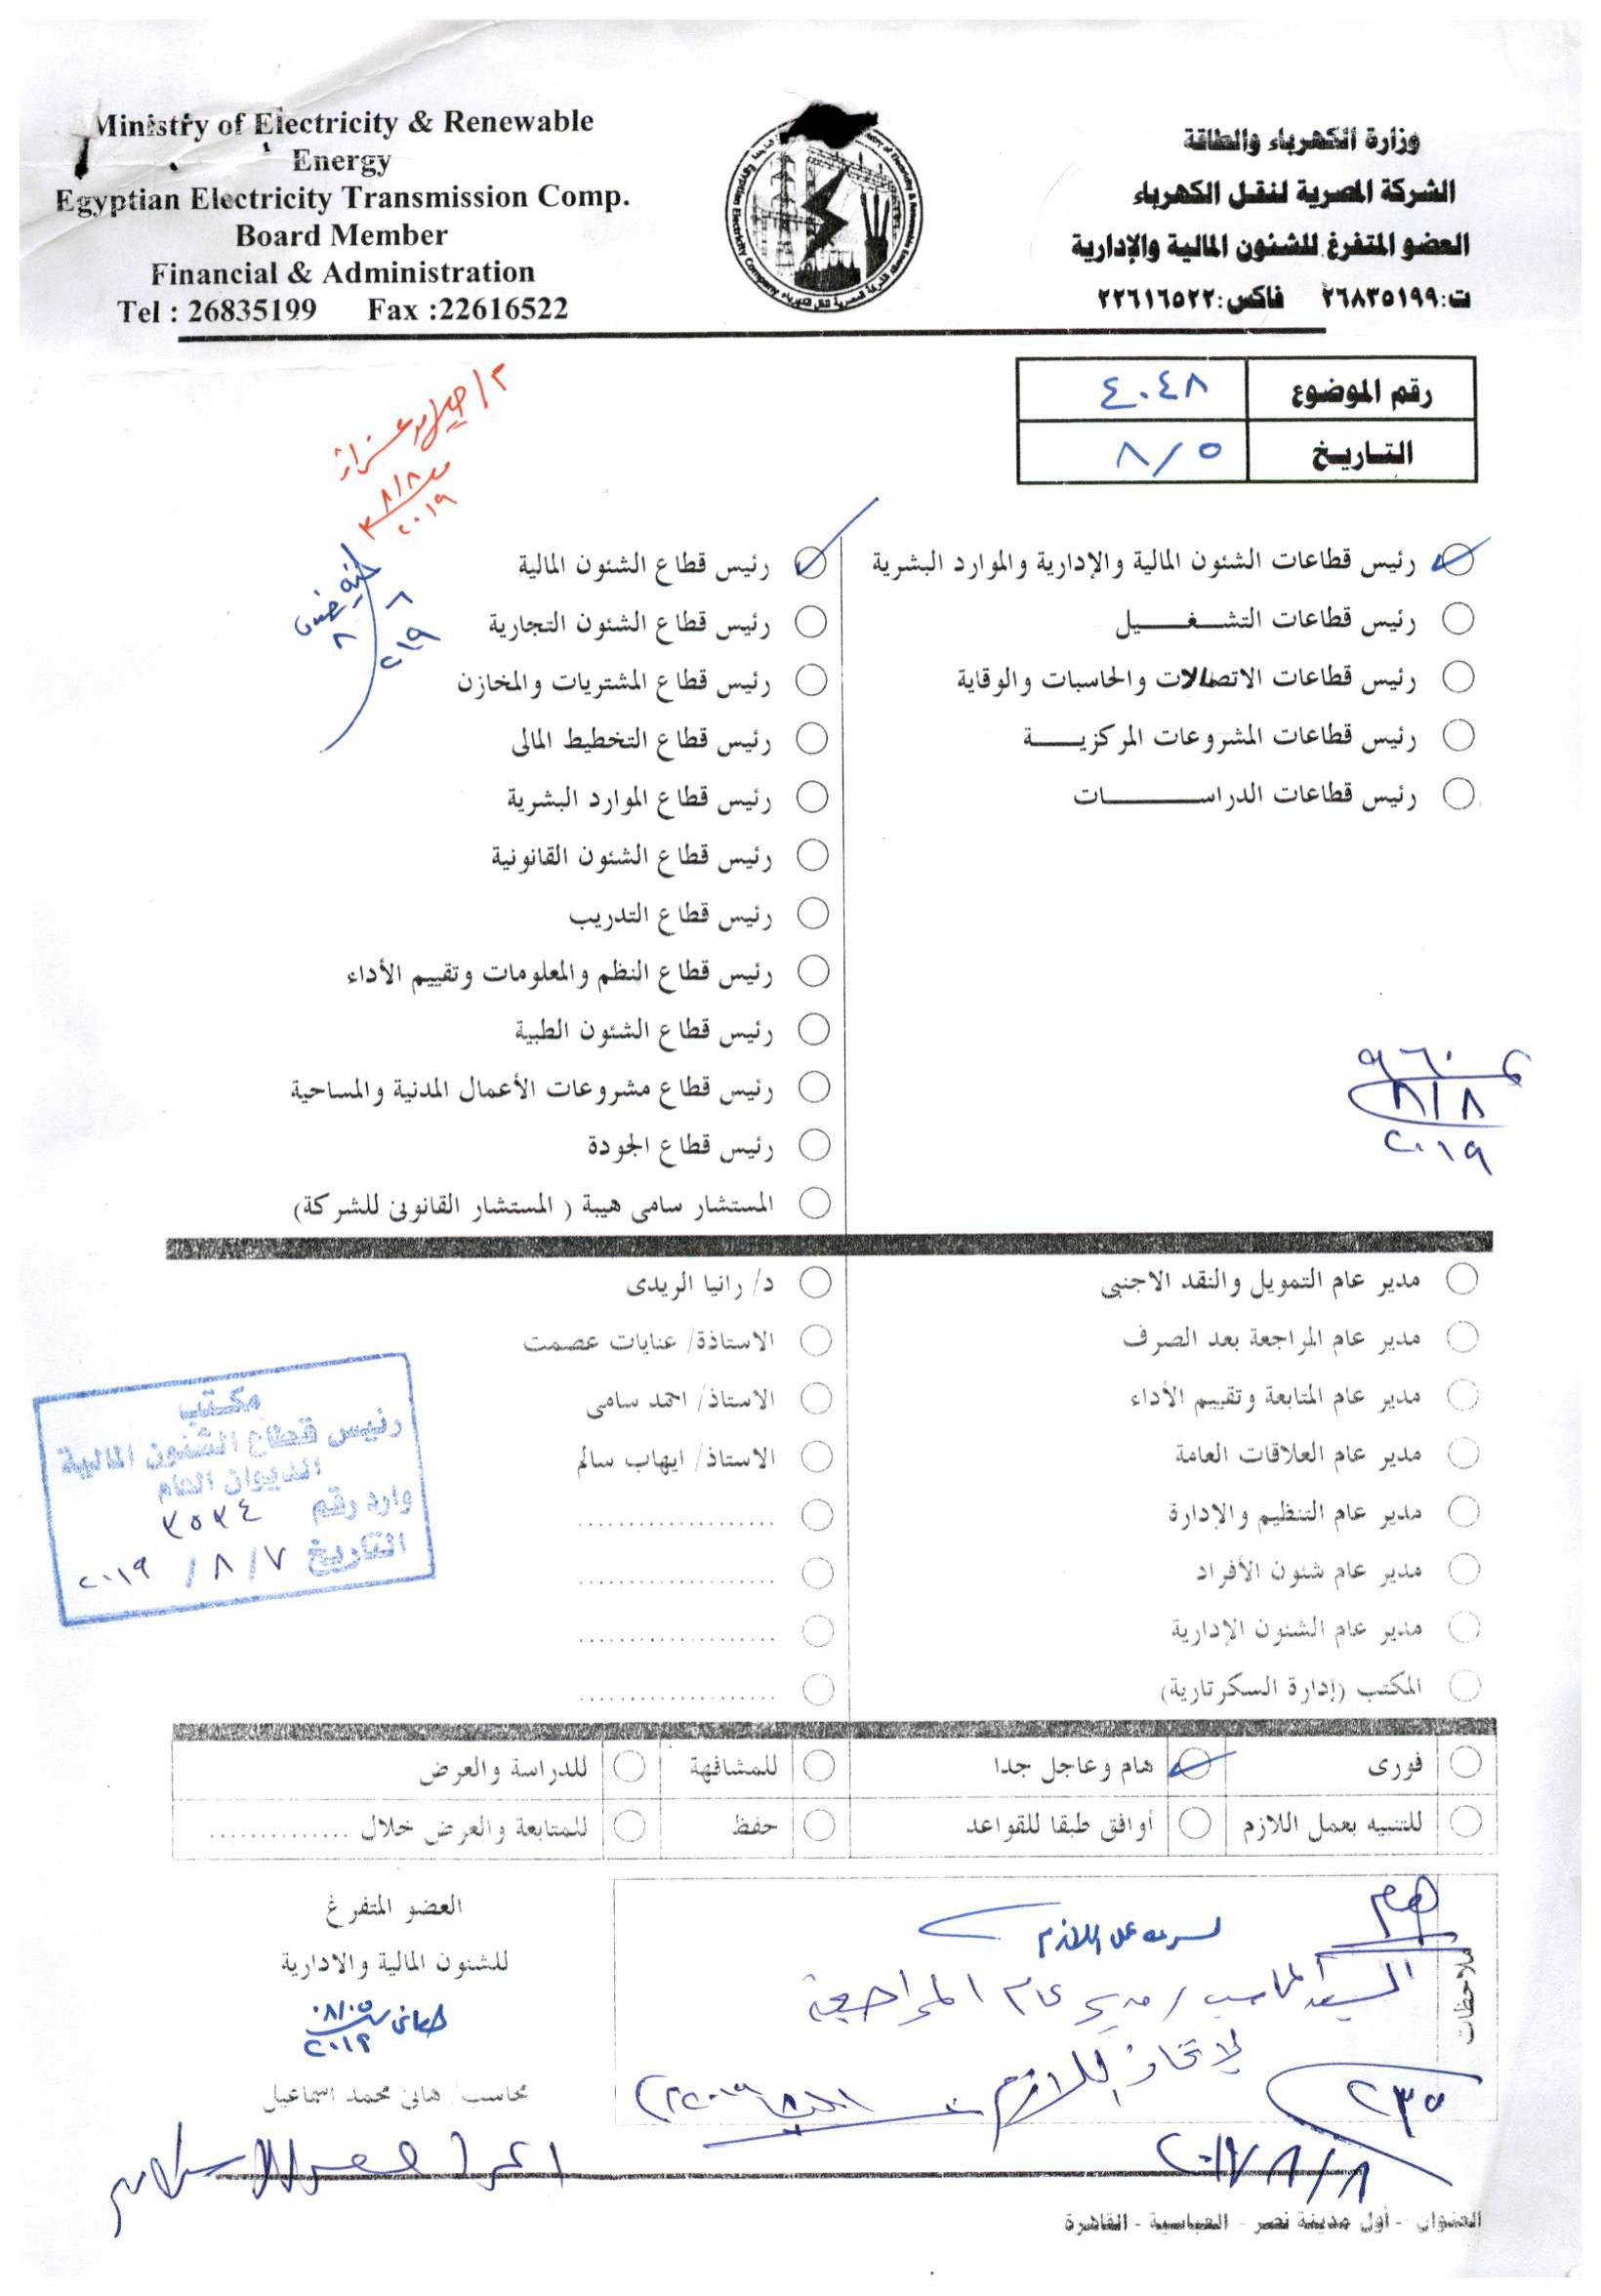 Ministry of Electricity & Renewable
Energy
Egyptian Electricity Transmission Comp.
Board Member
Financial & Administration
Tel : 26835199 Fax :22616522
وزارة الكهرباء والطاقة
الشركة المصرية لنقل الكهرباء
العضو المتفرغ للشئون المالية والإدارية
ت:٢٦٨٣٥١٩٩ فاكس:٢٢٦١٦٥٢٢
رقم الموضوع ٤٠٤٨
التاريخ ٨/٥
رئيس قطاعات الشئون المالية والإدارية والموارد البشرية
رئيس قطاعات التشغيل
رئيس قطاعات الاتصالات والحاسبات والوقاية
رئيس قطاعات المشروعات المركزية
رئيس قطاعات الدراسات
٩٦٠
٨/٨
٢٠١٩
رئيس قطاع الشئون المالية
رئيس قطاع الشئون التجارية
رئيس قطاع المشتريات والمخازن
رئيس قطاع التخطيط المالى
رئيس قطاع الموارد البشرية
رئيس قطاع الشئون القانونية
رئيس قطاع التدريب
رئيس قطاع النظم والمعلومات وتقييم الأداء
رئيس قطاع الشئون الطبية
رئيس قطاع مشروعات الأعمال المدنية والمساحية
رئيس قطاع الجودة
المستشار سامى هيبة ( المستشار القانونى للشركة)
٨/٨
٢٠١٩
مدير عام التمويل والنقد الاجنبى
مدير عام المراجعة بعد الصرف
مدير عام المتابعة وتقييم الأداء
مدير عام العلاقات العامة
مدير عام التنظيم والإدارة
مدير عام شئون الأفراد
مدير عام الشئون الإدارية
المكتب (إدارة السكرتارية)
د/ رانيا الريدى
الاستاذة/ عنايات عصمت
الاستاذ/ احمد سامى
الاستاذ/ ايهاب سالم
مكتب
رئيس قطاع الشئون المالية
الديوان العام
وارد رقم ٣٥٣٤
التاريخ ٨/٧ / ٢٠١٩
فورى هام وعاجل جدا للمشافهة للدراسة والعرض
للتنبيه بعمل اللازم أوافق طبقا للقواعد حفظ للمتابعة والعرض خلال ..............
ملاحظات
هام
لسرعة عمل اللازم
السيد المحاسب / مدير عام المراجعة
لاتخاذ اللازم
٢٣٥
العضو المتفرغ
للشئون المالية والادارية
٠٨/٠٥
٢٠١٩
محاسب/ هانى محمد اسماعيل
العنوان - أول مدينة نصر - العباسية - القاهرة